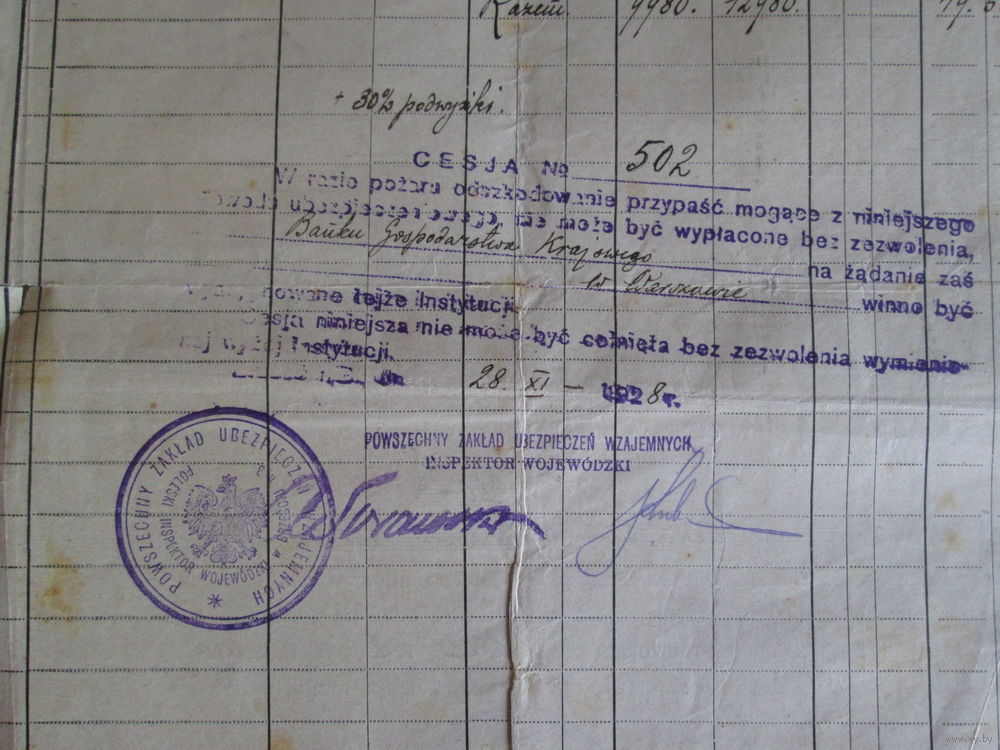 Razem 9980. 12980. 19.
+ 30% podwyżki.
CESJA № 502
W razie pożaru odszkodowanie przypaść mogące z niniejszego
nie może być wypłacone bez zezwolenia,
Banku Gospodarstwa Krajowego
na żądanie zaś
w Warszawie winno być
tejże Instytucji
Cesja niniejsza nie może być cofnięta bez zezwolenia wymienio-
nej wyżej Instytucji.
28. XI — 1928 r.
POWSZECHNY ZAKŁAD UBEZPIECZEŃ WZAJEMNYCH
INSPEKTOR WOJEWÓDZKI
POWSZECHNY ZAKŁAD UBEZPIECZEŃ WZAJEMNYCH
INSPEKTOR WOJEWÓDZKI w BRZEŚCIU n/B POLSKI
www.ay.by